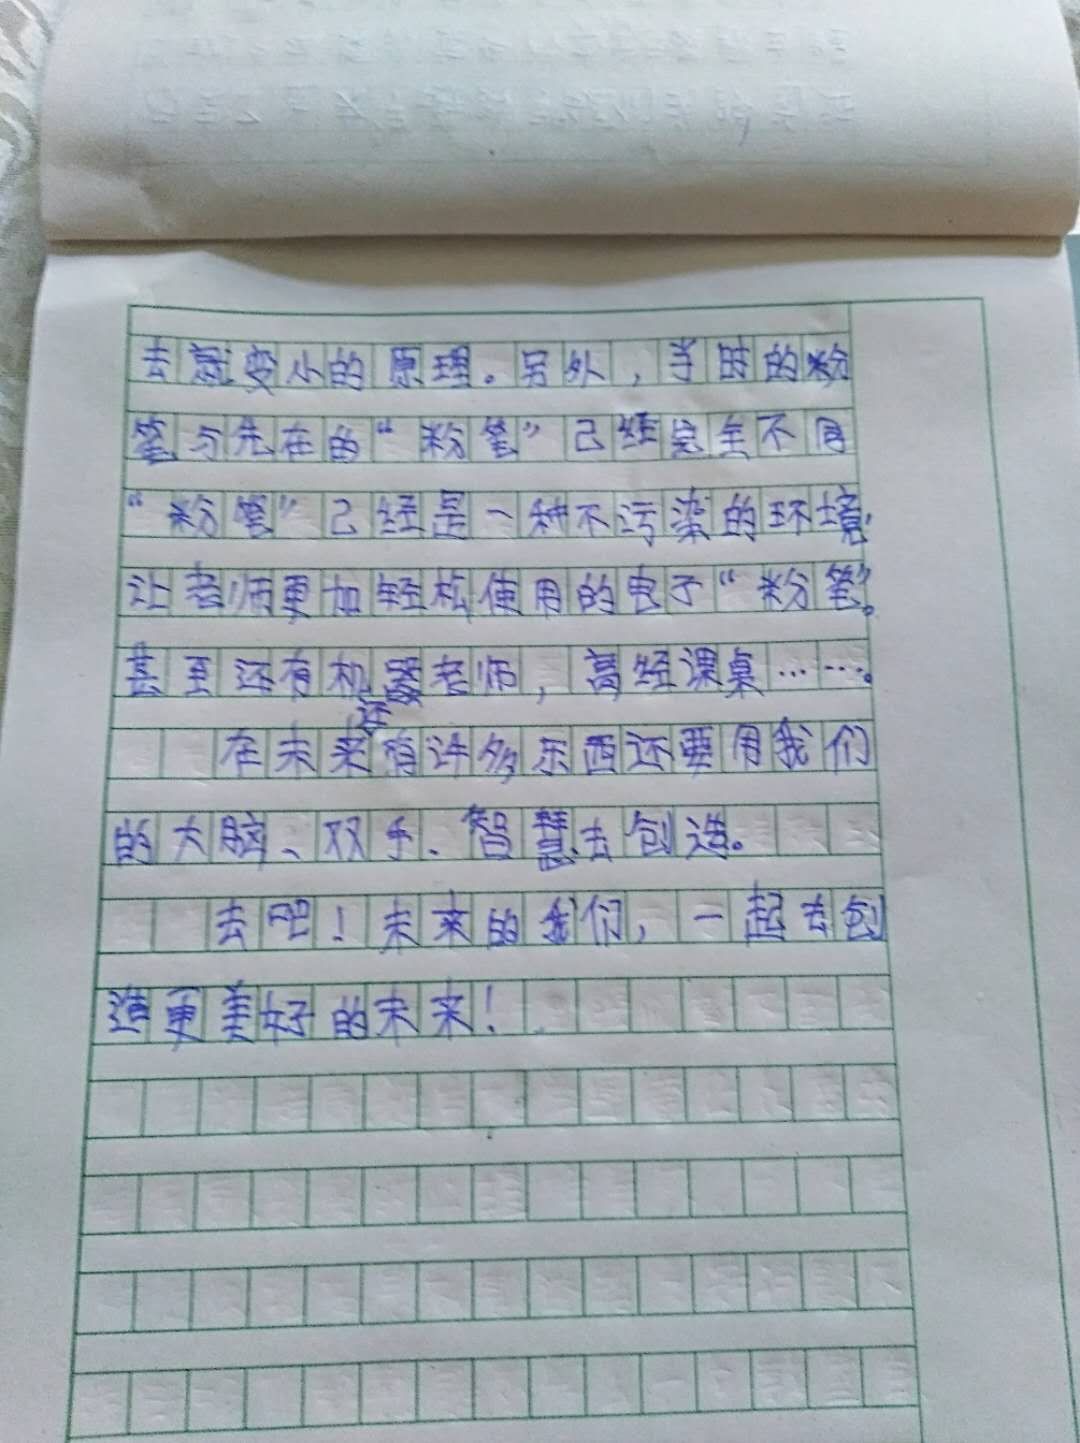 去就变小的原理。另外，当时的粉
笔与先在的“粉笔”己经完全不同
“粉笔”己经是一种不污染的环境，
让老师更加轻松使用的电子“粉笔”。
甚至还有机器老师，高经课桌……。
在未来还有许多东西还要用我们
的大脑、双手、智慧去创造。
去吧！未来的我们，一起去创
造更美好的未来！